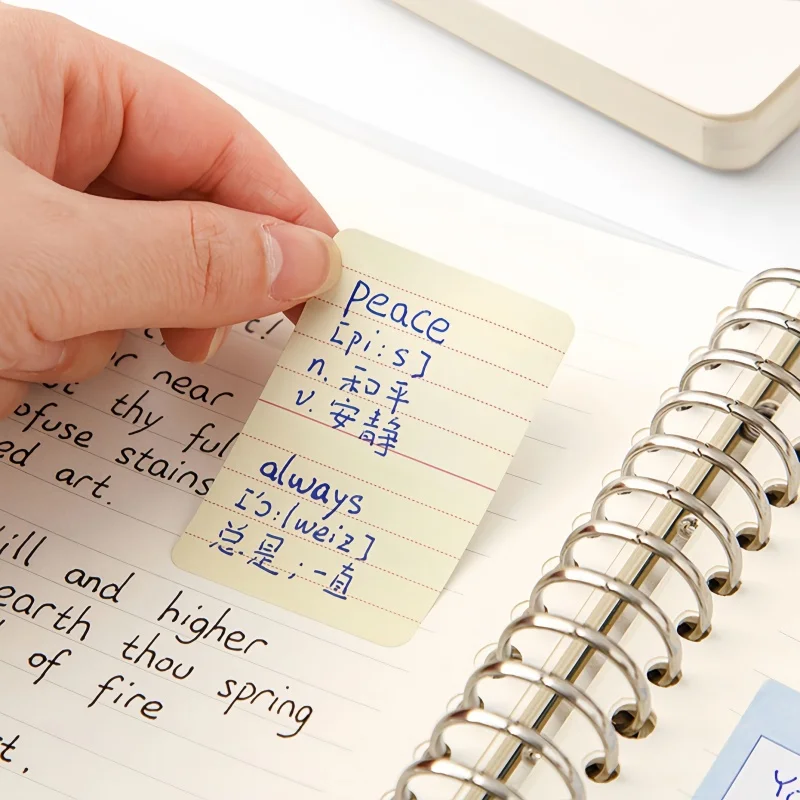 peace
[pi:s]
n. 和平
v. 安静
always
['ɔ:lweiz]
总是;一直
near
thy ful
stains
art.
and higher
earth thou spring
of fire